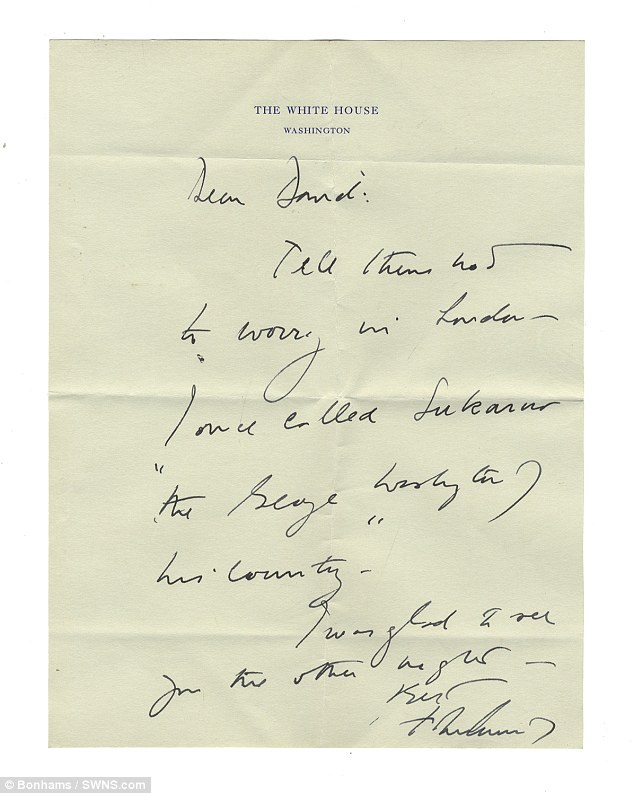 THE WHITE HOUSE
WASHINGTON
Dear David:
Tell them not
to worry in London —
I once called Sukarno
"the George Washington of
his country" —
I was glad to see
you the other night —
Best
© Bonhams / SWNS.com